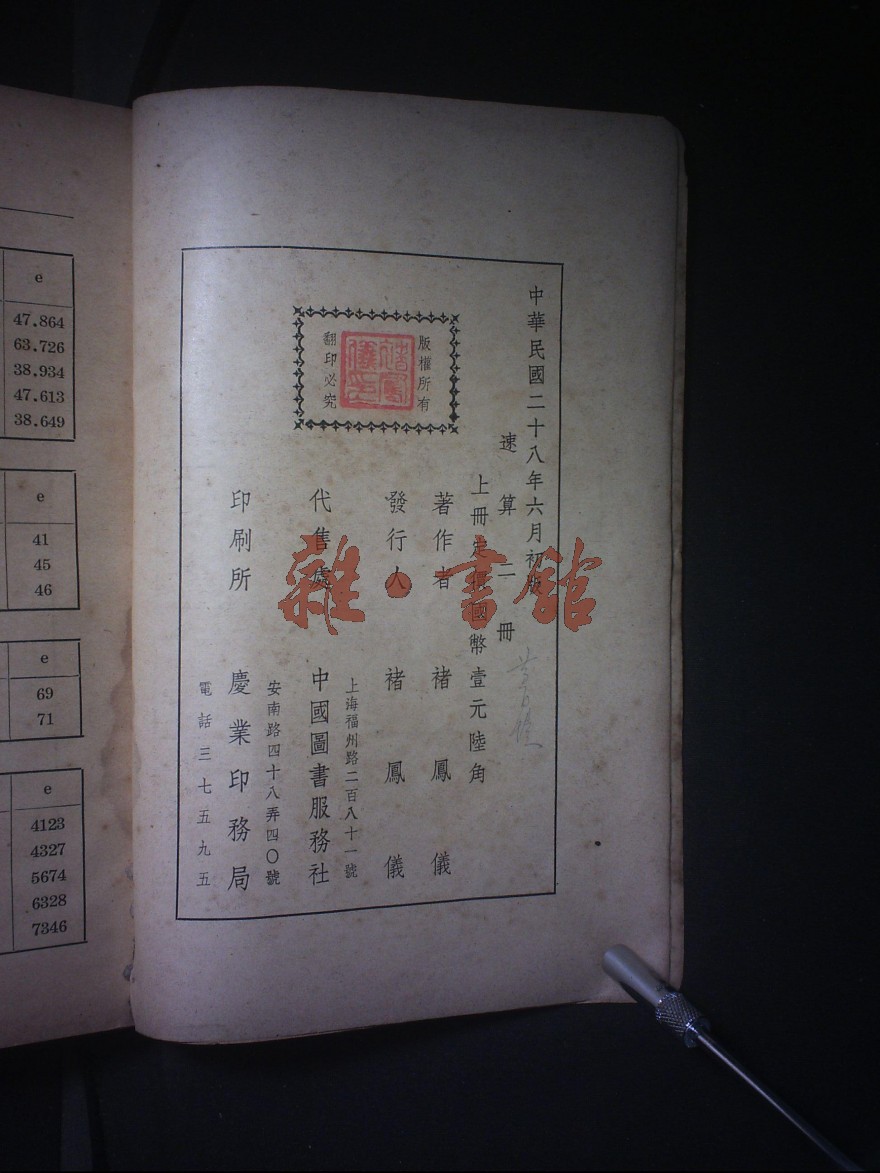 中華民國二十八年六月初版
速算二冊
上冊定價國幣壹元陸角
版權所有
翻印必究
著作者 褚鳳儀
發行人 褚鳳儀
上海福州路二百八十一號
代售處 中國圖書服務社
安南路四十八弄四〇號
印刷所 慶業印務局
電話三七五九五
褚鳳儀印
雜·書館
e
47.864
63.726
38.934
47.613
38.649
e
41
45
46
e
69
71
e
4123
4327
5674
6328
7346